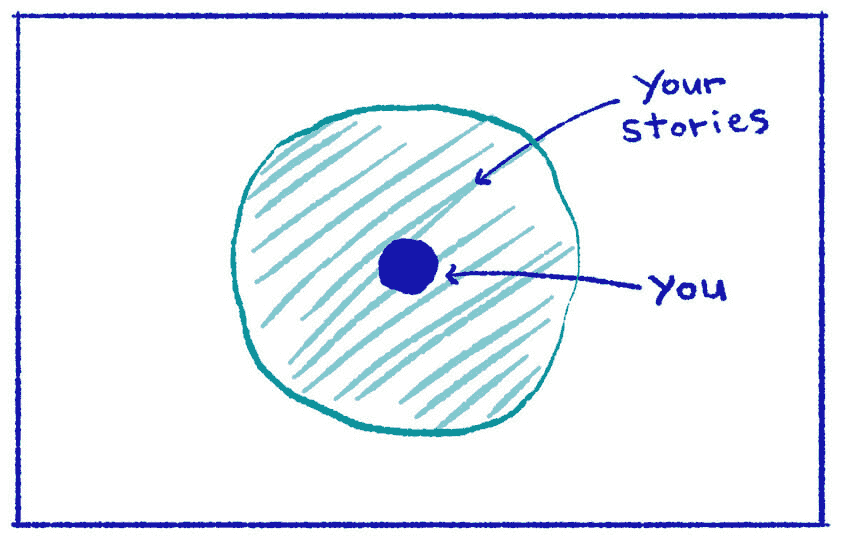 Your
stories
You